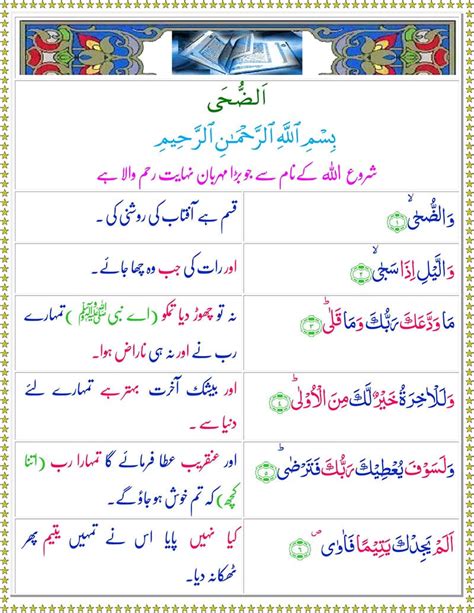 اَلضُّحَى
بِسْمِ اللَّهِ الرَّحْمَٰنِ الرَّحِيمِ
شروع اللہ کے نام سے جو بڑا مہربان نہایت رحم والا ہے
وَالضُّحٰىۙ ﴿۱﴾
قسم ہے آفتاب کی روشنی کی ۔
وَالَّيْلِ اِذَا سَجٰىۙ ﴿۲﴾
اور رات کی جب وہ چھا جائے۔
مَا وَدَّعَكَ رَبُّكَ وَمَا قَلٰىؕ ﴿۳﴾
نہ تو چھوڑ دیا تمکو (اے نبی ﷺ) تمہارے
رب نے اور نہ ہی ناراض ہوا۔
وَلَلْاٰخِرَةُ خَيْرٌ لَّكَ مِنَ الْاُوْلٰىؕ ﴿۴﴾
اور بیشک آخرت بہتر ہے تمہارے لئے
دنیا سے ۔
وَلَسَوْفَ يُعْطِيْكَ رَبُّكَ فَتَرْضٰىؕ ﴿۵﴾
اور عنقریب عطا فرمائے گا تمہارا رب (اتنا
کچھ) کہ تم خوش ہو جاؤ گے۔
اَلَمْ يَجِدْكَ يَتِيْمًا فَاٰوٰى ۪ ﴿۶﴾
کیا نہیں پایا اس نے تمہیں یتیم پھر
ٹھکانہ دیا۔